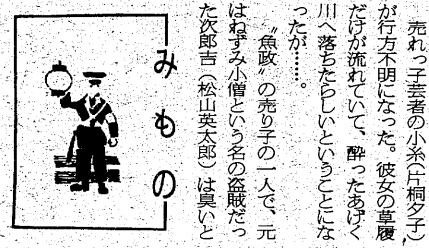 売れっ子芸者の小糸（片桐夕子）
が行方不明になった。彼女の草履
だけが流れていて、酔ったあげく
川へ落ちたらしいということにな
ったが……。
〝魚政〟の売り子の一人で、元
はねずみ小僧という名の盗賊だっ
た次郎吉（松山英太郎）は臭いと
みもの